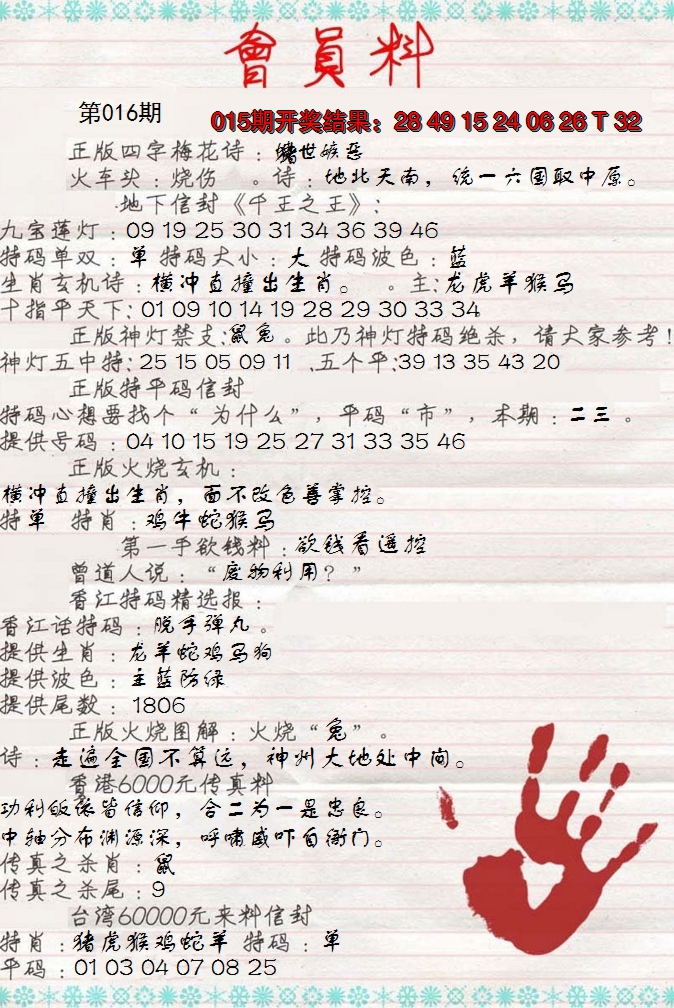 會員料
第016期
015期开奖结果：28 49 15 24 06 26 T 32
正版四字梅花诗：世嫉恶
火车头：烧伤 。诗：地北天南，统一六国取中原。
地下信封《千王之王》：
九宝莲灯：09 19 25 30 31 34 36 39 46
特码单双：单 特码大小：大 特码波色：蓝
生肖玄机诗：横冲直撞出生肖。 。主：龙虎羊猴马
十指平天下：01 09 10 14 19 28 29 30 33 34
正版神灯禁支：鼠兔。此乃神灯特码绝杀，请大家参考！
神灯五中特：25 15 05 09 11 .五个平：39 13 35 43 20
正版特平码信封
特码心想要找个“为什么”，平码“市”，本期：二三。
提供号码：04 10 15 19 25 27 31 33 35 46
正版火烧玄机：
横冲直撞出生肖，面不改色善掌控。
特单 特肖：鸡牛蛇猴马
第一手欲钱料：欲钱看遥控
曾道人说：“废物利用？”
香江特码精选报：
香江话特码：脱手弹丸。
提供生肖：龙羊蛇鸡马狗
提供波色：主蓝防绿
提供尾数：1806
正版火烧图解：火烧“兔”。
诗：走遍全国不算远，神州大地处中间。
香港6000元传真料
功利皈依皆信仰，合二为一是忠良。
中轴分布渊源深，呼啸威吓自衙门。
传真之杀肖：鼠
传真之杀尾：9
台湾60000元来料信封
特肖：猪虎猴鸡蛇羊 特码：单
平码：01 03 04 07 08 25